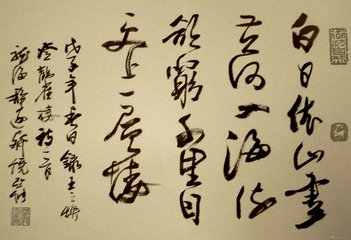 白日依山盡
黃河入海流
欲窮千里目
更上一層樓
戊子年春日錄王之渙
登鸛雀樓詩一首